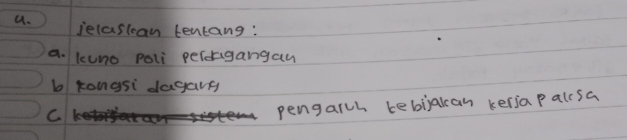 4. jelaskan tentang :
a. kuno poli perdagangan
b kongsi dagang
c. pengaruh kebijakan kerja paksa